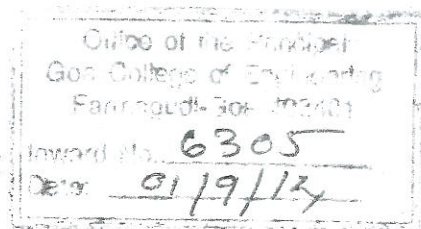 Office of the Principal
Goa College of Engineering
Farmagudi-Goa
Inward No. 6305
Date: 01/9/12